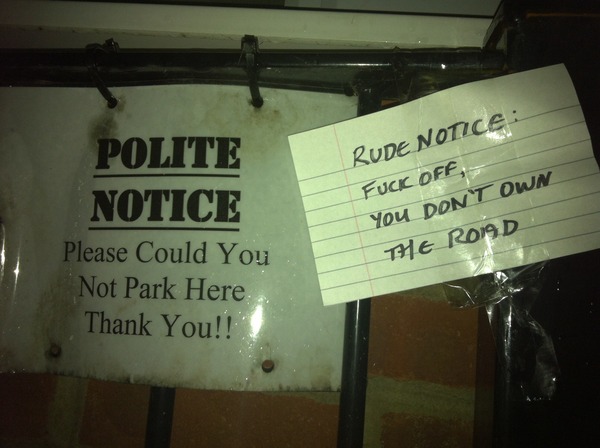 POLITE
NOTICE
Please Could You
Not Park Here
Thank You!!
RUDE NOTICE:
FUCK OFF,
YOU DON'T OWN
THE ROAD